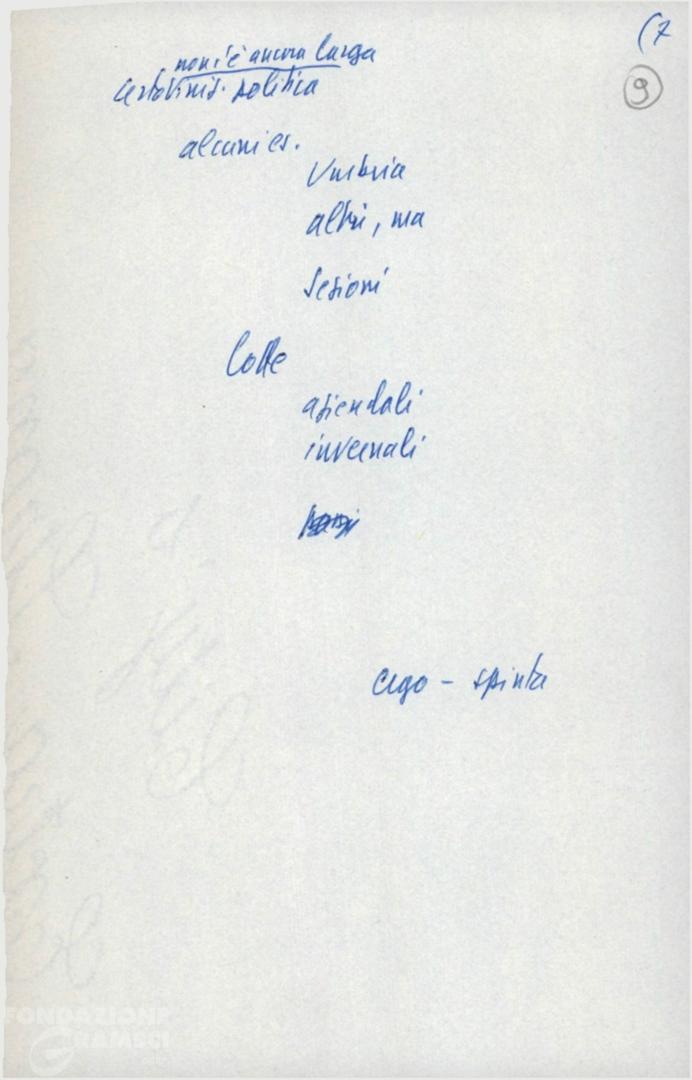 (7
9
non c'è ancora larga
iniz. politica
alcuni es.
Umbria
altri, ma
Sezioni
Lotte
aziendali
invernali
- spinta
FONDAZIONE
GRAMSCI